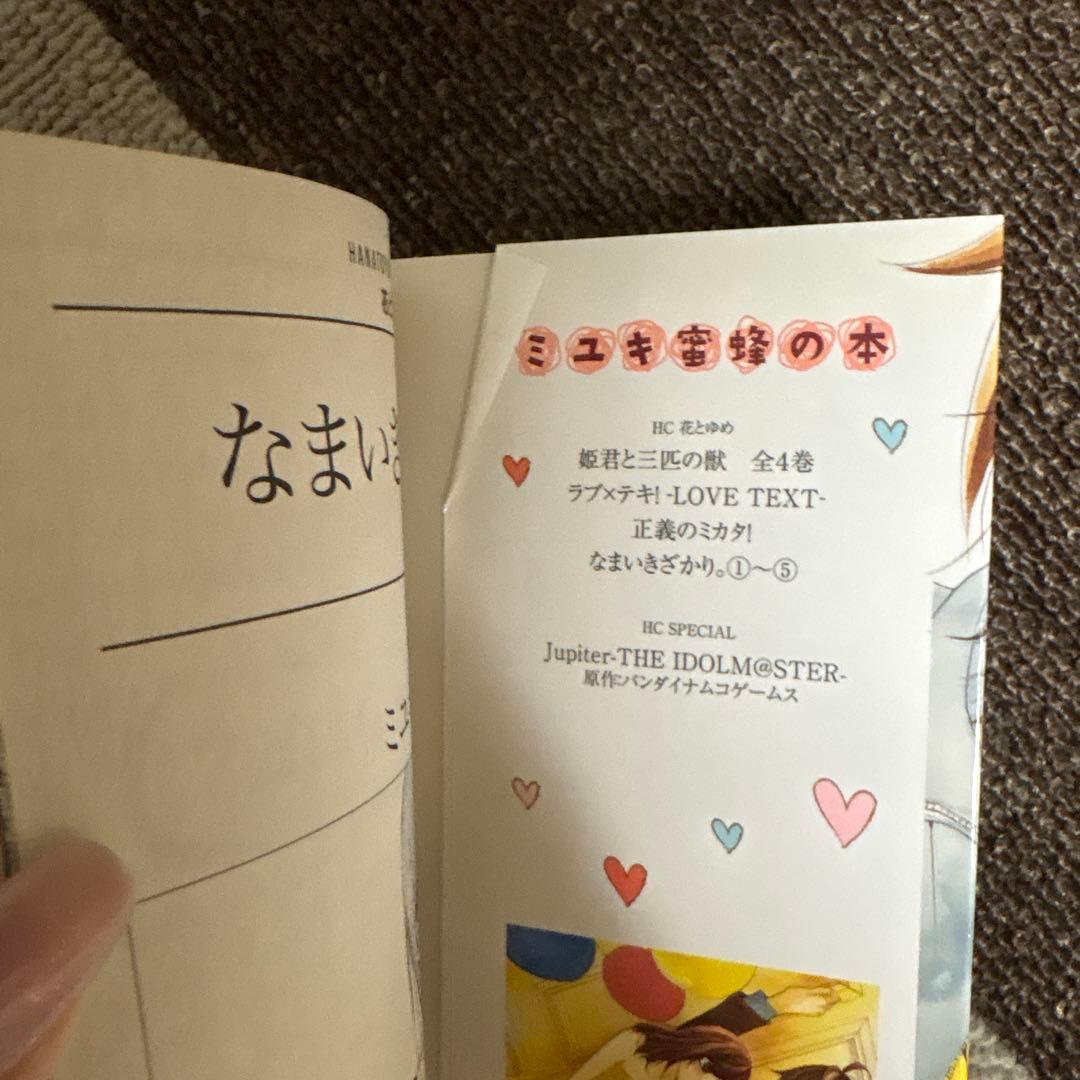 なまいき
ミユキ蜜蜂の本
HC 花とゆめ
姫君と三匹の獣　全4巻
ラブ×テキ! -LOVE TEXT-
正義のミカタ!
なまいきざかり。①〜⑤
HC SPECIAL
Jupiter-THE IDOLM@STER-
原作:バンダイナムコゲームス